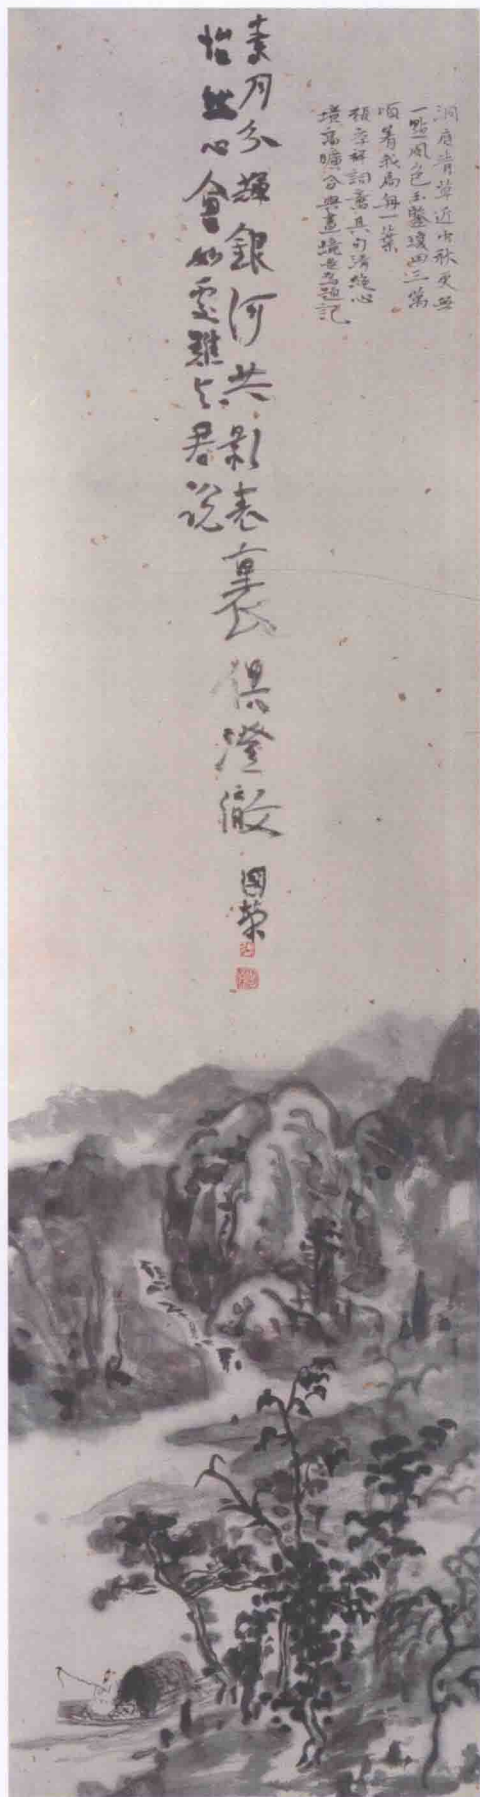 洞庭青草近中秋更無
一點風色玉鑒瓊田三萬
頃着我扁舟一葉
張孝祥詞意其句清絶心
境高曠合與畫境為題記
素月分輝銀河共影表裏俱澄徹
怡然心會妙處難與君説
國榮